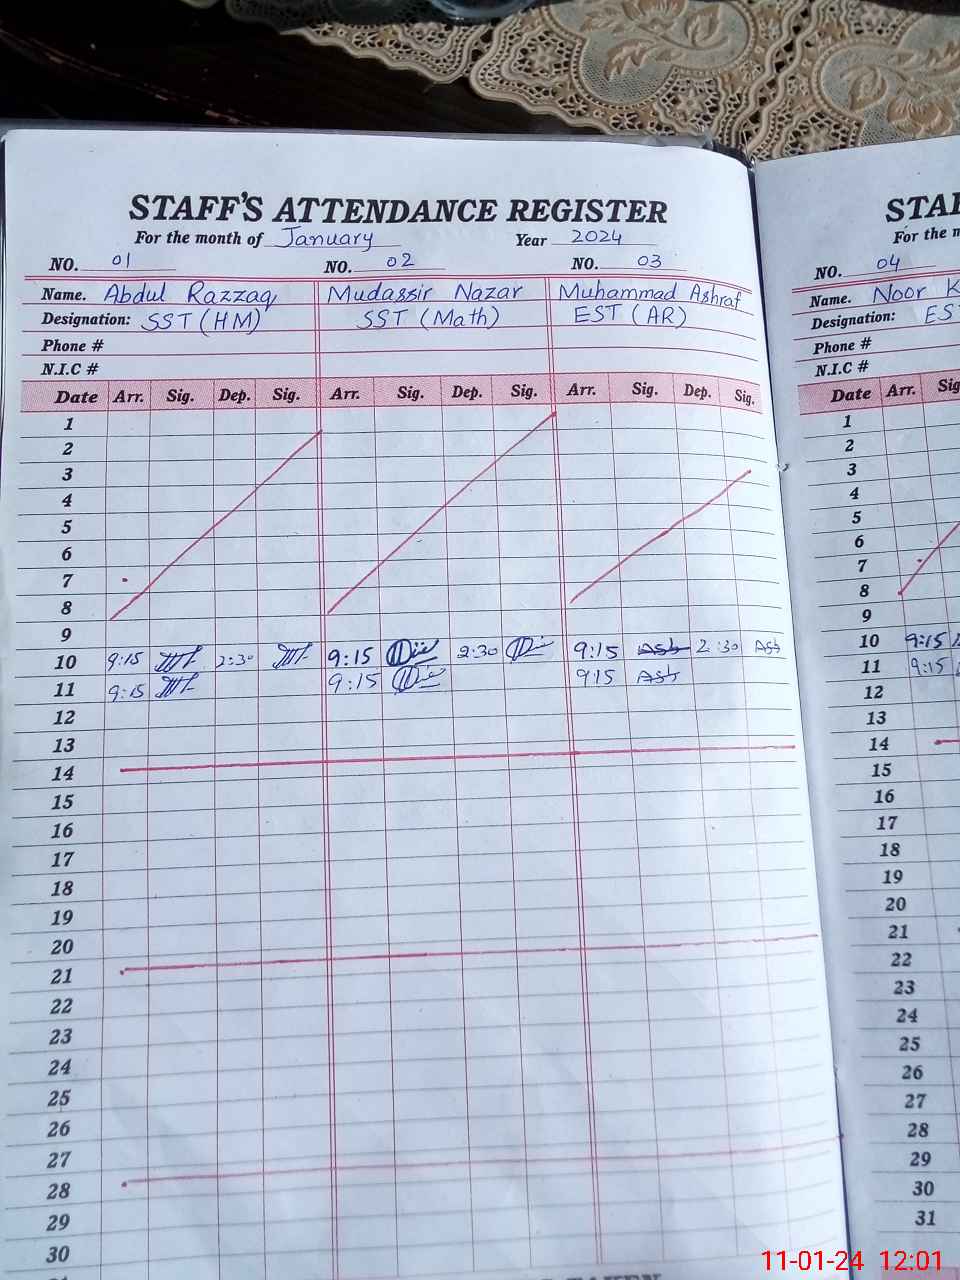 STAFF'S ATTENDANCE REGISTER
For the month of January Year 2024
NO. 01 NO. 02 NO. 03
Name. Abdul Razzaq Mudassir Nazar Muhammad Ashraf
Designation: SST (HM) SST (Math) EST (AR)
Phone #
N.I.C #
Date Arr. Sig. Dep. Sig. Arr. Sig. Dep. Sig. Arr. Sig. Dep. Sig.
1
2
3
4
5
6
7
8
9
10 9:15 2:30 9:15 2:30 9:15 Ash 2:30 Ash
11 9:15 9:15 9:15 Ash
12
13
14
15
16
17
18
19
20
21
22
23
24
25
26
27
28
29
30
NO. 04
Name. Noor
Designation:
Phone #
N.I.C #
Date Arr.
1
2
3
4
5
6
7
8
9
10 9:15
11 9:15
12
13
14
15
16
17
18
19
20
21
22
23
24
25
26
27
28
29
30
31
11-01-24 12:01